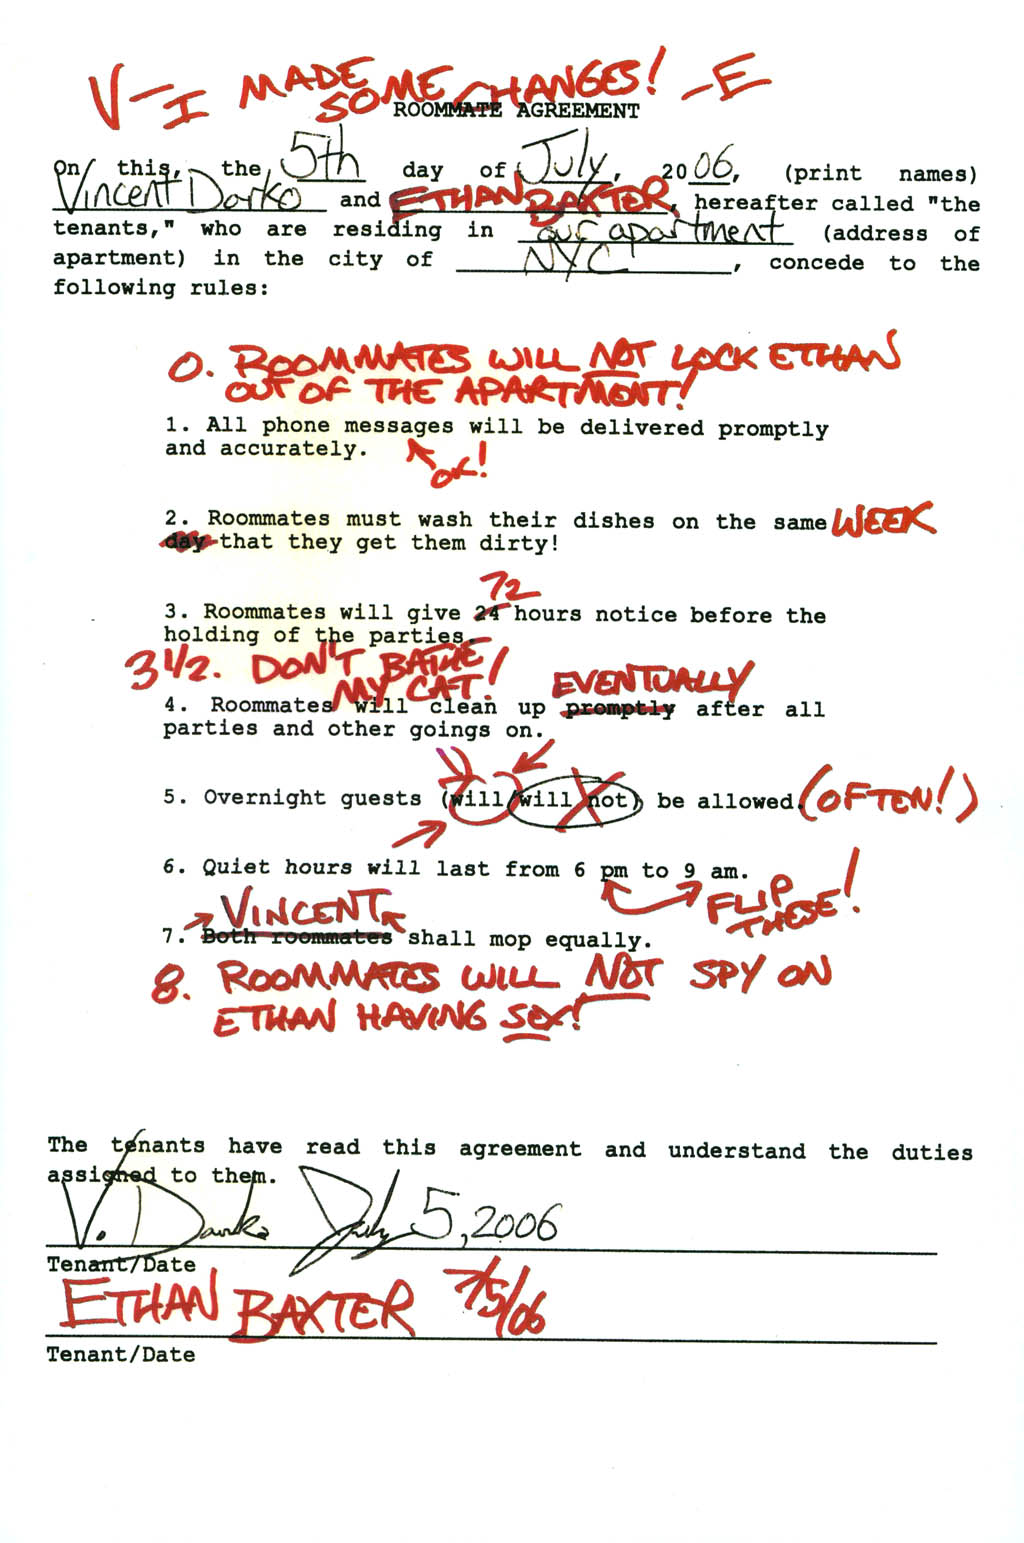 V-I MADE SOME CHANGES! -E
ROOMMATE AGREEMENT
On this, the 5th day of July, 2006, (print names)
Vincent Darko and ETHAN BAXTER, hereafter called "the
tenants," who are residing in our apartment (address of
apartment) in the city of NYC, concede to the
following rules:
0. ROOMMATES WILL NOT LOCK ETHAN
OUT OF THE APARTMENT!
1. All phone messages will be delivered promptly
and accurately.
OK!
2. Roommates must wash their dishes on the same WEEK
day that they get them dirty!
72
3. Roommates will give 24 hours notice before the
holding of the parties.
3 1/2. DON'T BATHE
MY CAT!
EVENTUALLY
4. Roommates will clean up promptly after all
parties and other goings on.
5. Overnight guests (will/will not) be allowed. (OFTEN!)
6. Quiet hours will last from 6 pm to 9 am.
FLIP
THESE!
VINCENT
7. Both roommates shall mop equally.
8. ROOMMATES WILL NOT SPY ON
ETHAN HAVING SEX!
The tenants have read this agreement and understand the duties
assigned to them.
V. Darko July 5, 2006
Tenant/Date
ETHAN BAXTER 7/5/06
Tenant/Date